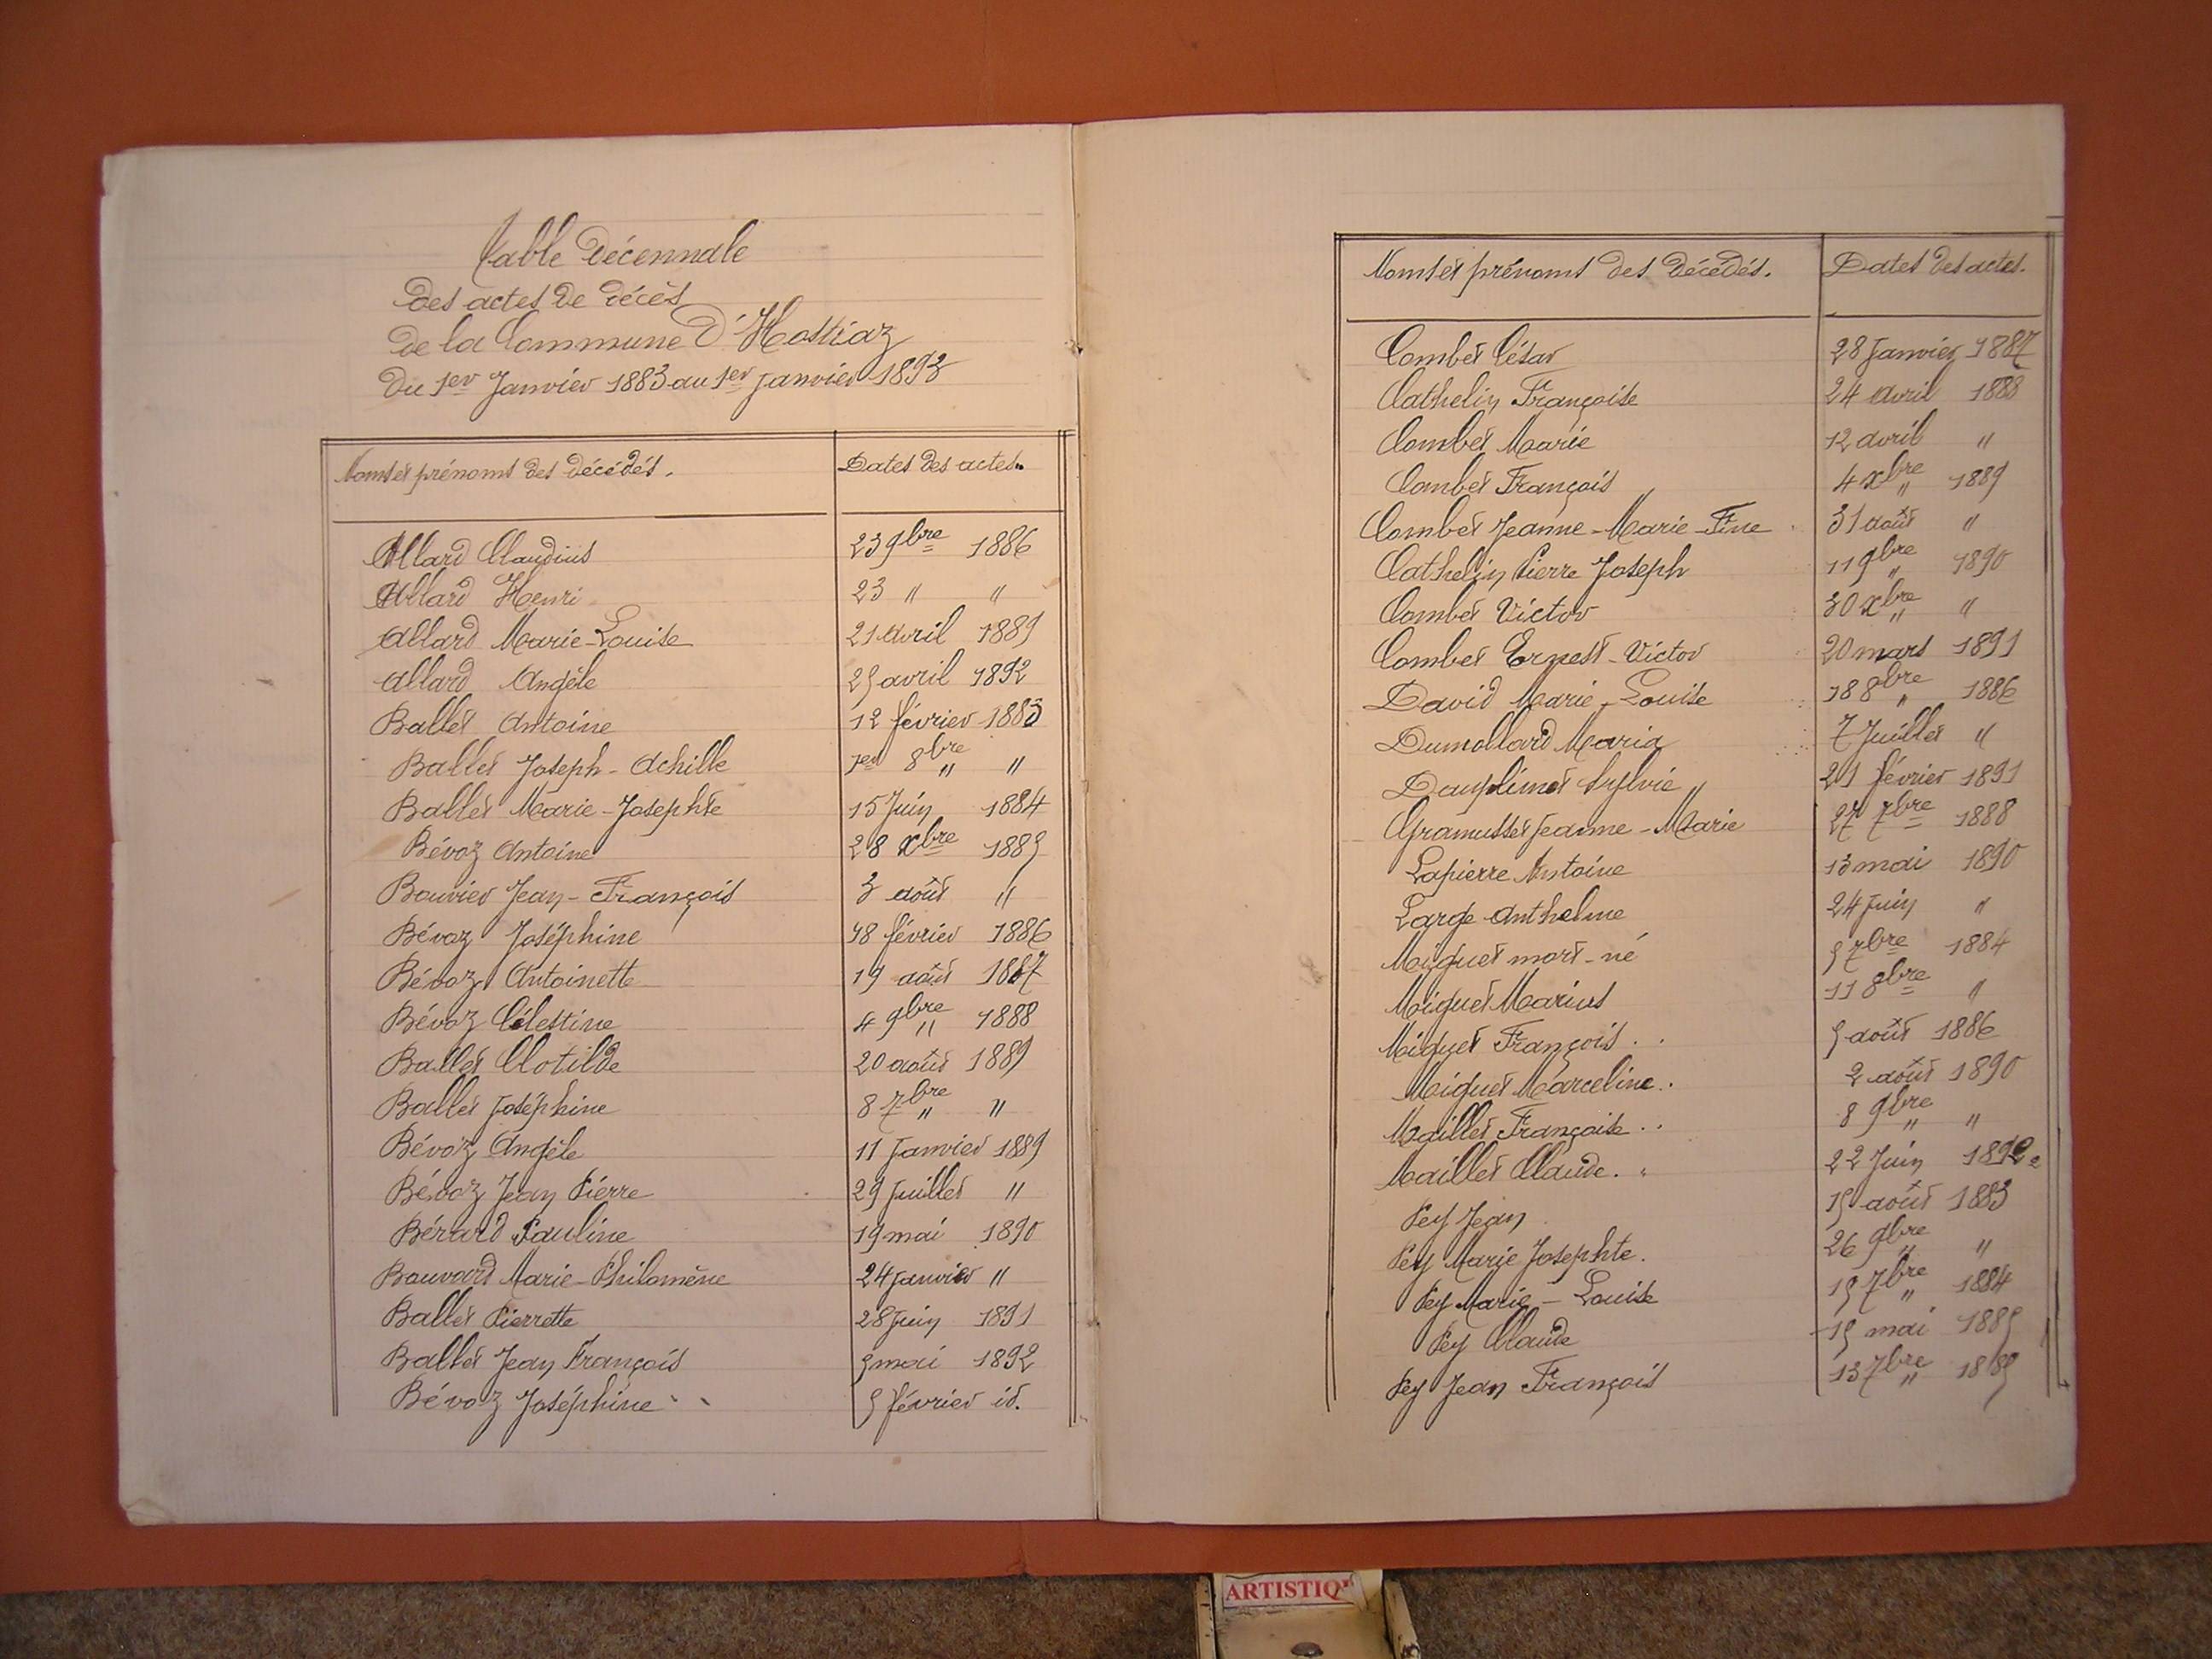 Table Décennale
des actes de décès
de la Commune d'Hostiaz
du 1er Janvier 1883 au 1er janvier 1893
Noms et prénoms des décédés. Dates des actes.
Allard Claudius 23 9bre 1886
Allard Henri 23 " "
Allard Marie-Louise 21 avril 1889
Allard Angèle 25 avril 1892
Ballet Antoine 12 février 1883
Ballet Joseph-Achille 1er 8bre " "
Ballet Marie-Josephte 15 Juin 1884
Bévoz Antoine 28 Xbre 1885
Bouvier Jean-François 3 août "
Bévoz Joséphine 18 février 1886
Bévoz Antoinette 19 août 1887
Bévoz Célestine 4 9bre " 1888
Ballet Clotilde 20 août 1889
Ballet Joséphine 8 7bre " "
Bévoz Angèle 11 Janvier 1889
Bévoz Jean Pierre 29 Juillet "
Bérard Pauline 19 mai 1890
Bouvard Marie-Philomène 24 janvier "
Ballet Pierrette 28 Juin 1891
Ballet Jean François 5 mai 1892
Bévoz Joséphine 5 février id.
Noms et prénoms des décédés. Dates des actes.
Combet César 28 Janvier 1887
Cathelin Françoise 24 avril 1888
Combet Marie 12 avril "
Combet François 4 Xbre " 1889
Combet Jeanne-Marie-Fine 31 août "
Cathelin Pierre Joseph 11 9bre " 1890
Combet Victor 30 Xbre " "
Combet Ernest-Victor 20 mars 1891
David Marie-Louise 18 8bre " 1886
Dumollard Maria 7 Juillet "
Sylvie 21 février 1891
Gramusset Jeanne-Marie 27 7bre 1888
Lapierre Antoine 13 mai 1890
Large Anthelme 24 juin "
Miguet mort-né 5 7bre 1884
Miguet Marius 11 8bre "
Miguet François 5 août 1886
Miguet Marceline 2 août 1890
Maillet Françoise 8 9bre " "
Maillet Claude 22 Juin 1892
Pey Jean 15 août 1883
Pey Marie Josephte. 26 9bre " "
Pey Marie-Louise 15 7bre " 1884
Pey Claude 15 mai 1885
Pey Jean François 13 7bre "
ARTISTIQ